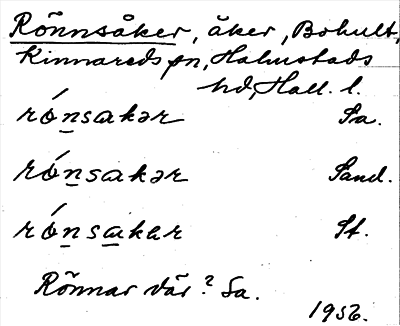 Rönnsåker, åker, Bohult,
Kinnareds sn, Halmstads
hd, Hall. l.
rónsakər Sa.
rónsakər Sand.
rónsakar St.
Rönnar där? Sa.
1956.